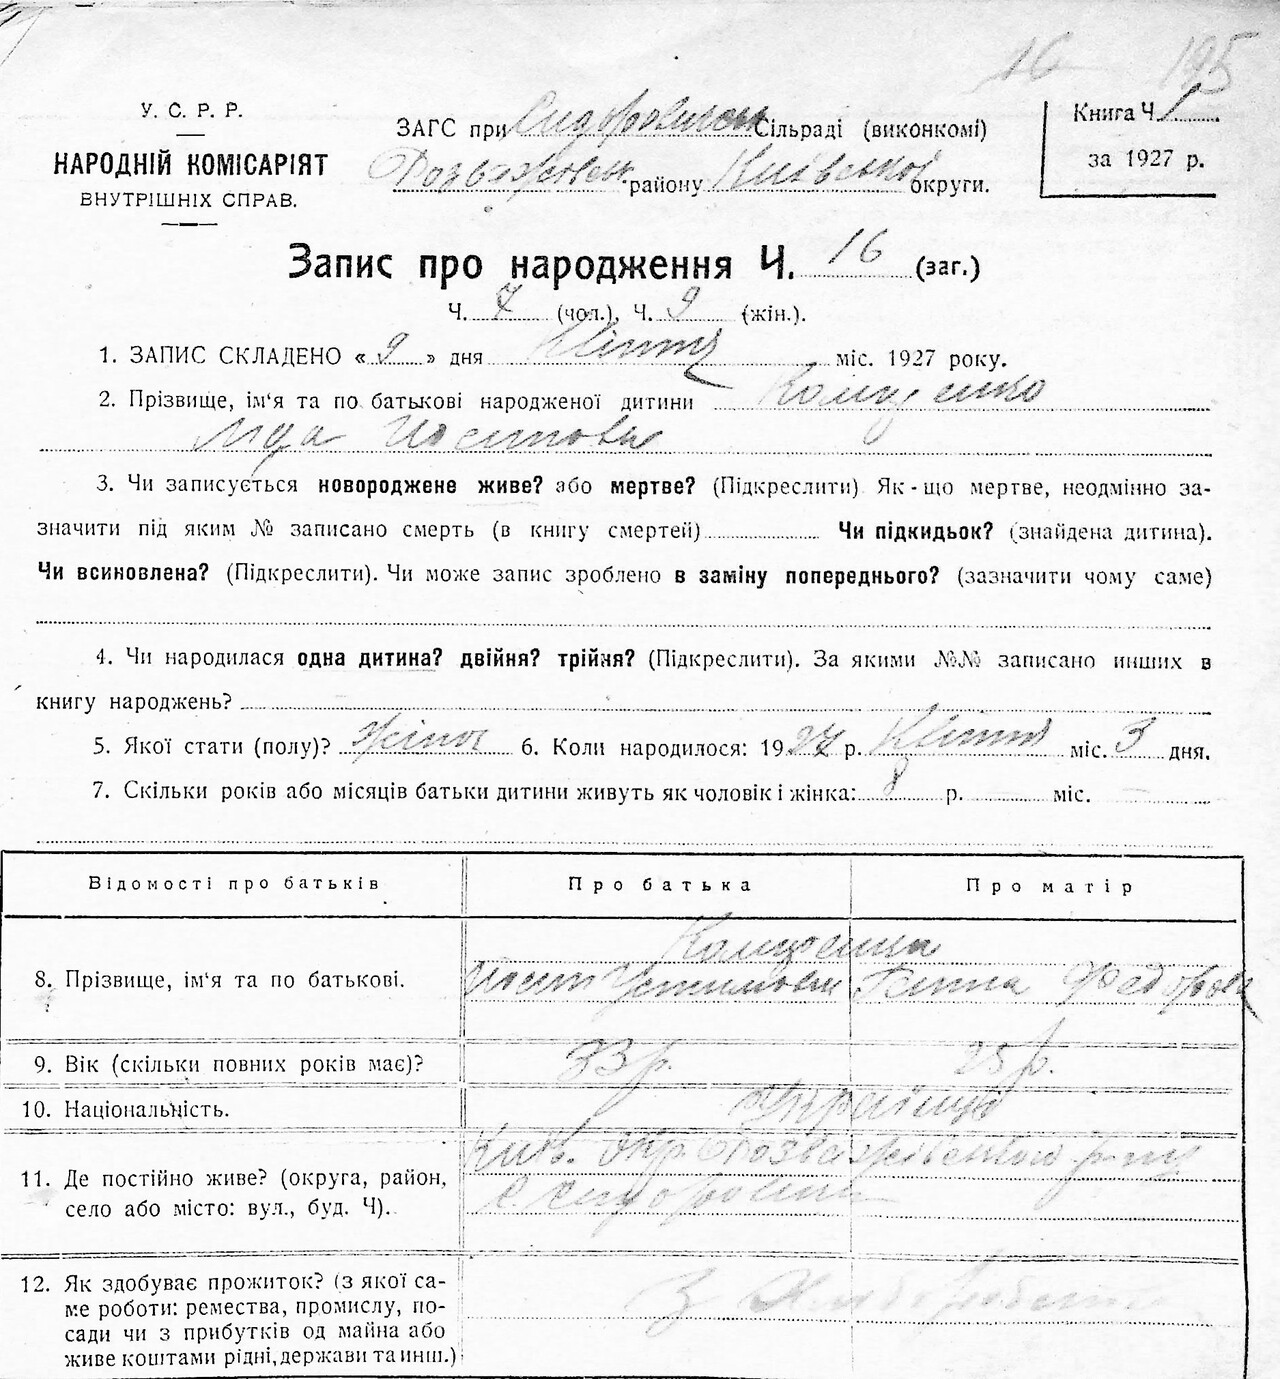 16 195
У. С. Р. Р.
НАРОДНІЙ КОМІСАРІЯТ
ВНУТРІШНІХ СПРАВ.
ЗАГС при Сидоровичськ Сільраді (виконкомі)
Розважівськ. району Київської округи.
Книга Ч. 1
за 1927 р.
Запис про народження Ч. 16 (заг.)
Ч. 7 (чол.), Ч. 9 (жін.).
1. ЗАПИС СКЛАДЕНО « 9 » дня Квітня міс. 1927 року.
2. Прізвище, ім'я та по батькові народженої дитини
Йосиповна
3. Чи записується новороджене живе? або мертве? (Підкреслити) Як-що мертве, неодмінно за-
значити під яким № записано смерть (в книгу смертей) Чи підкидьок? (знайдена дитина).
Чи всиновлена? (Підкреслити). Чи може запис зроблено в заміну попереднього? (зазначити чому саме)
4. Чи народилася одна дитина? двійня? трійня? (Підкреслити). За якими №№ записано инших в
книгу народжень?
5. Якої стати (полу)? жіноч 6. Коли народилося: 1927 р. Квітня міс. 3 дня.
7. Скільки років або місяців батьки дитини живуть як чоловік і жінка: 8 р. — міс. —
Відомості про батьків Про батька Про матір
8. Прізвище, ім'я та по батькові.
Йосип Устимович Ганна Федоровна
9. Вік (скільки повних років має)? 33 р. 25 р.
10. Національність. Українці
11. Де постійно живе? (округа, район, село або місто: вул., буд. Ч).
Київ. окр. Розважівський р-ну
с. Сидоровичі
12. Як здобуває прожиток? (з якої са-
ме роботи: ремества, промислу, по-
сади чи з прибутків од майна або
живе коштами рідні, держави та инш.)
З Хліборобства